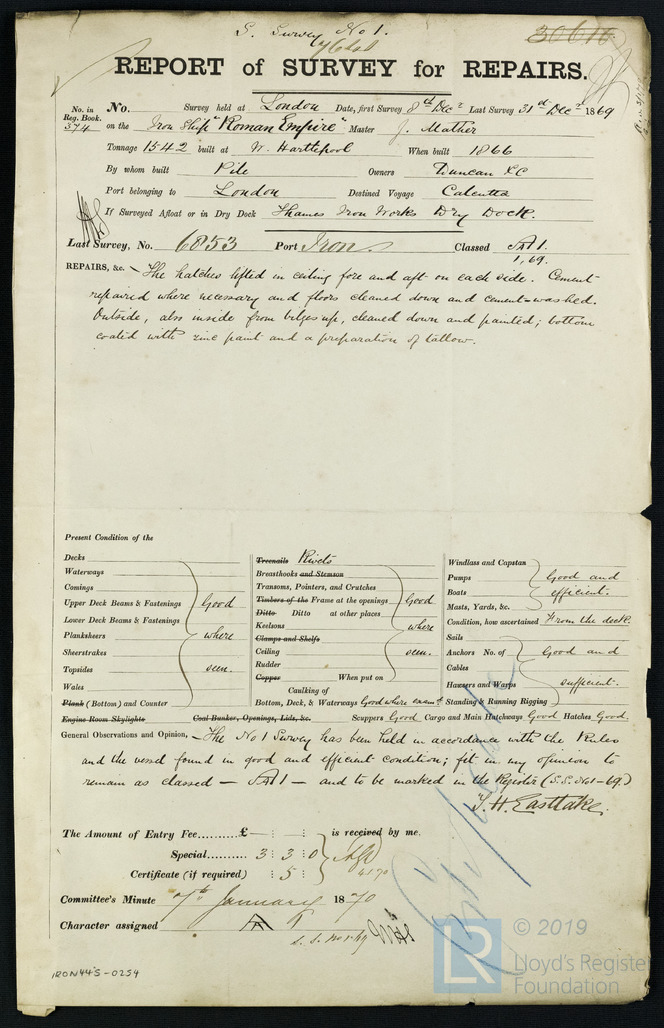 S. Survey No 1.
30616
REPORT of SURVEY for REPAIRS.
No. in Reg. Book. 374
No. Survey held at London Date, first Survey 8th Decr Last Survey 31st Decr 1869
on the Iron Ship "Roman Empire" Master J. Mather
Tonnage 1542 built at W. Hartlepool When built 1866
By whom built Pile Owners Duncan & C
Port belonging to London Destined Voyage Calcutta
If Surveyed Afloat or in Dry Dock Thames Iron Works Dry Dock.
Last Survey, No. 6853 Port Iron Classed A 1.
1,69.
REPAIRS, &c. - The hatches lifted in ceiling fore and aft on each side. Cement
repaired where necessary and floors cleaned down and cement-washed.
Outside, also inside from bilges up, cleaned down and painted; bottom
coated with zinc paint and a preparation of tallow.
Present Condition of the
Decks
Waterways
Comings
Upper Deck Beams & Fastenings
Lower Deck Beams & Fastenings
Planksheers
Sheerstrakes
Topsides
Wales
Plank (Bottom) and Counter
Good
where
seen.
Treenails Rivets
Breasthooks and Stemson
Transoms, Pointers, and Crutches
Timbers of the Frame at the openings
Ditto Ditto at other places
Keelsons
Clamps and Shelfs
Ceiling
Rudder
Copper When put on
Caulking of
Bottom, Deck, & Waterways Good where examd
Good
where
seen.
Windlass and Capstan
Pumps
Boats
Masts, Yards, &c.
Good and
efficient.
Condition, how ascertained From the deck.
Sails
Anchors No. of
Cables
Hawsers and Warps
Standing & Running Rigging
Good and
sufficient.
Engine Room Skylights Coal Bunker, Openings, Lids, &c. Scuppers Good Cargo and Main Hatchways Good Hatches Good.
General Observations and Opinion, - The No 1 Survey has been held in accordance with the Rules
and the vessel found in good and efficient condition; fit in my opinion to
remain as classed - A 1 - and to be marked in the Register (S.S. No 1 - 69.)
T. H. Eastlake.
The Amount of Entry Fee.......... £ - : - : is received by me.
Special.......... 3 : 3 : 0
Certificate (if required) : 5 :
4.1.70
Committee's Minute 7th January 1870
Character assigned A 1
S. S. No 1 · 69
IRON445-0254
LR
© 2019
Lloyd's Register
Foundation